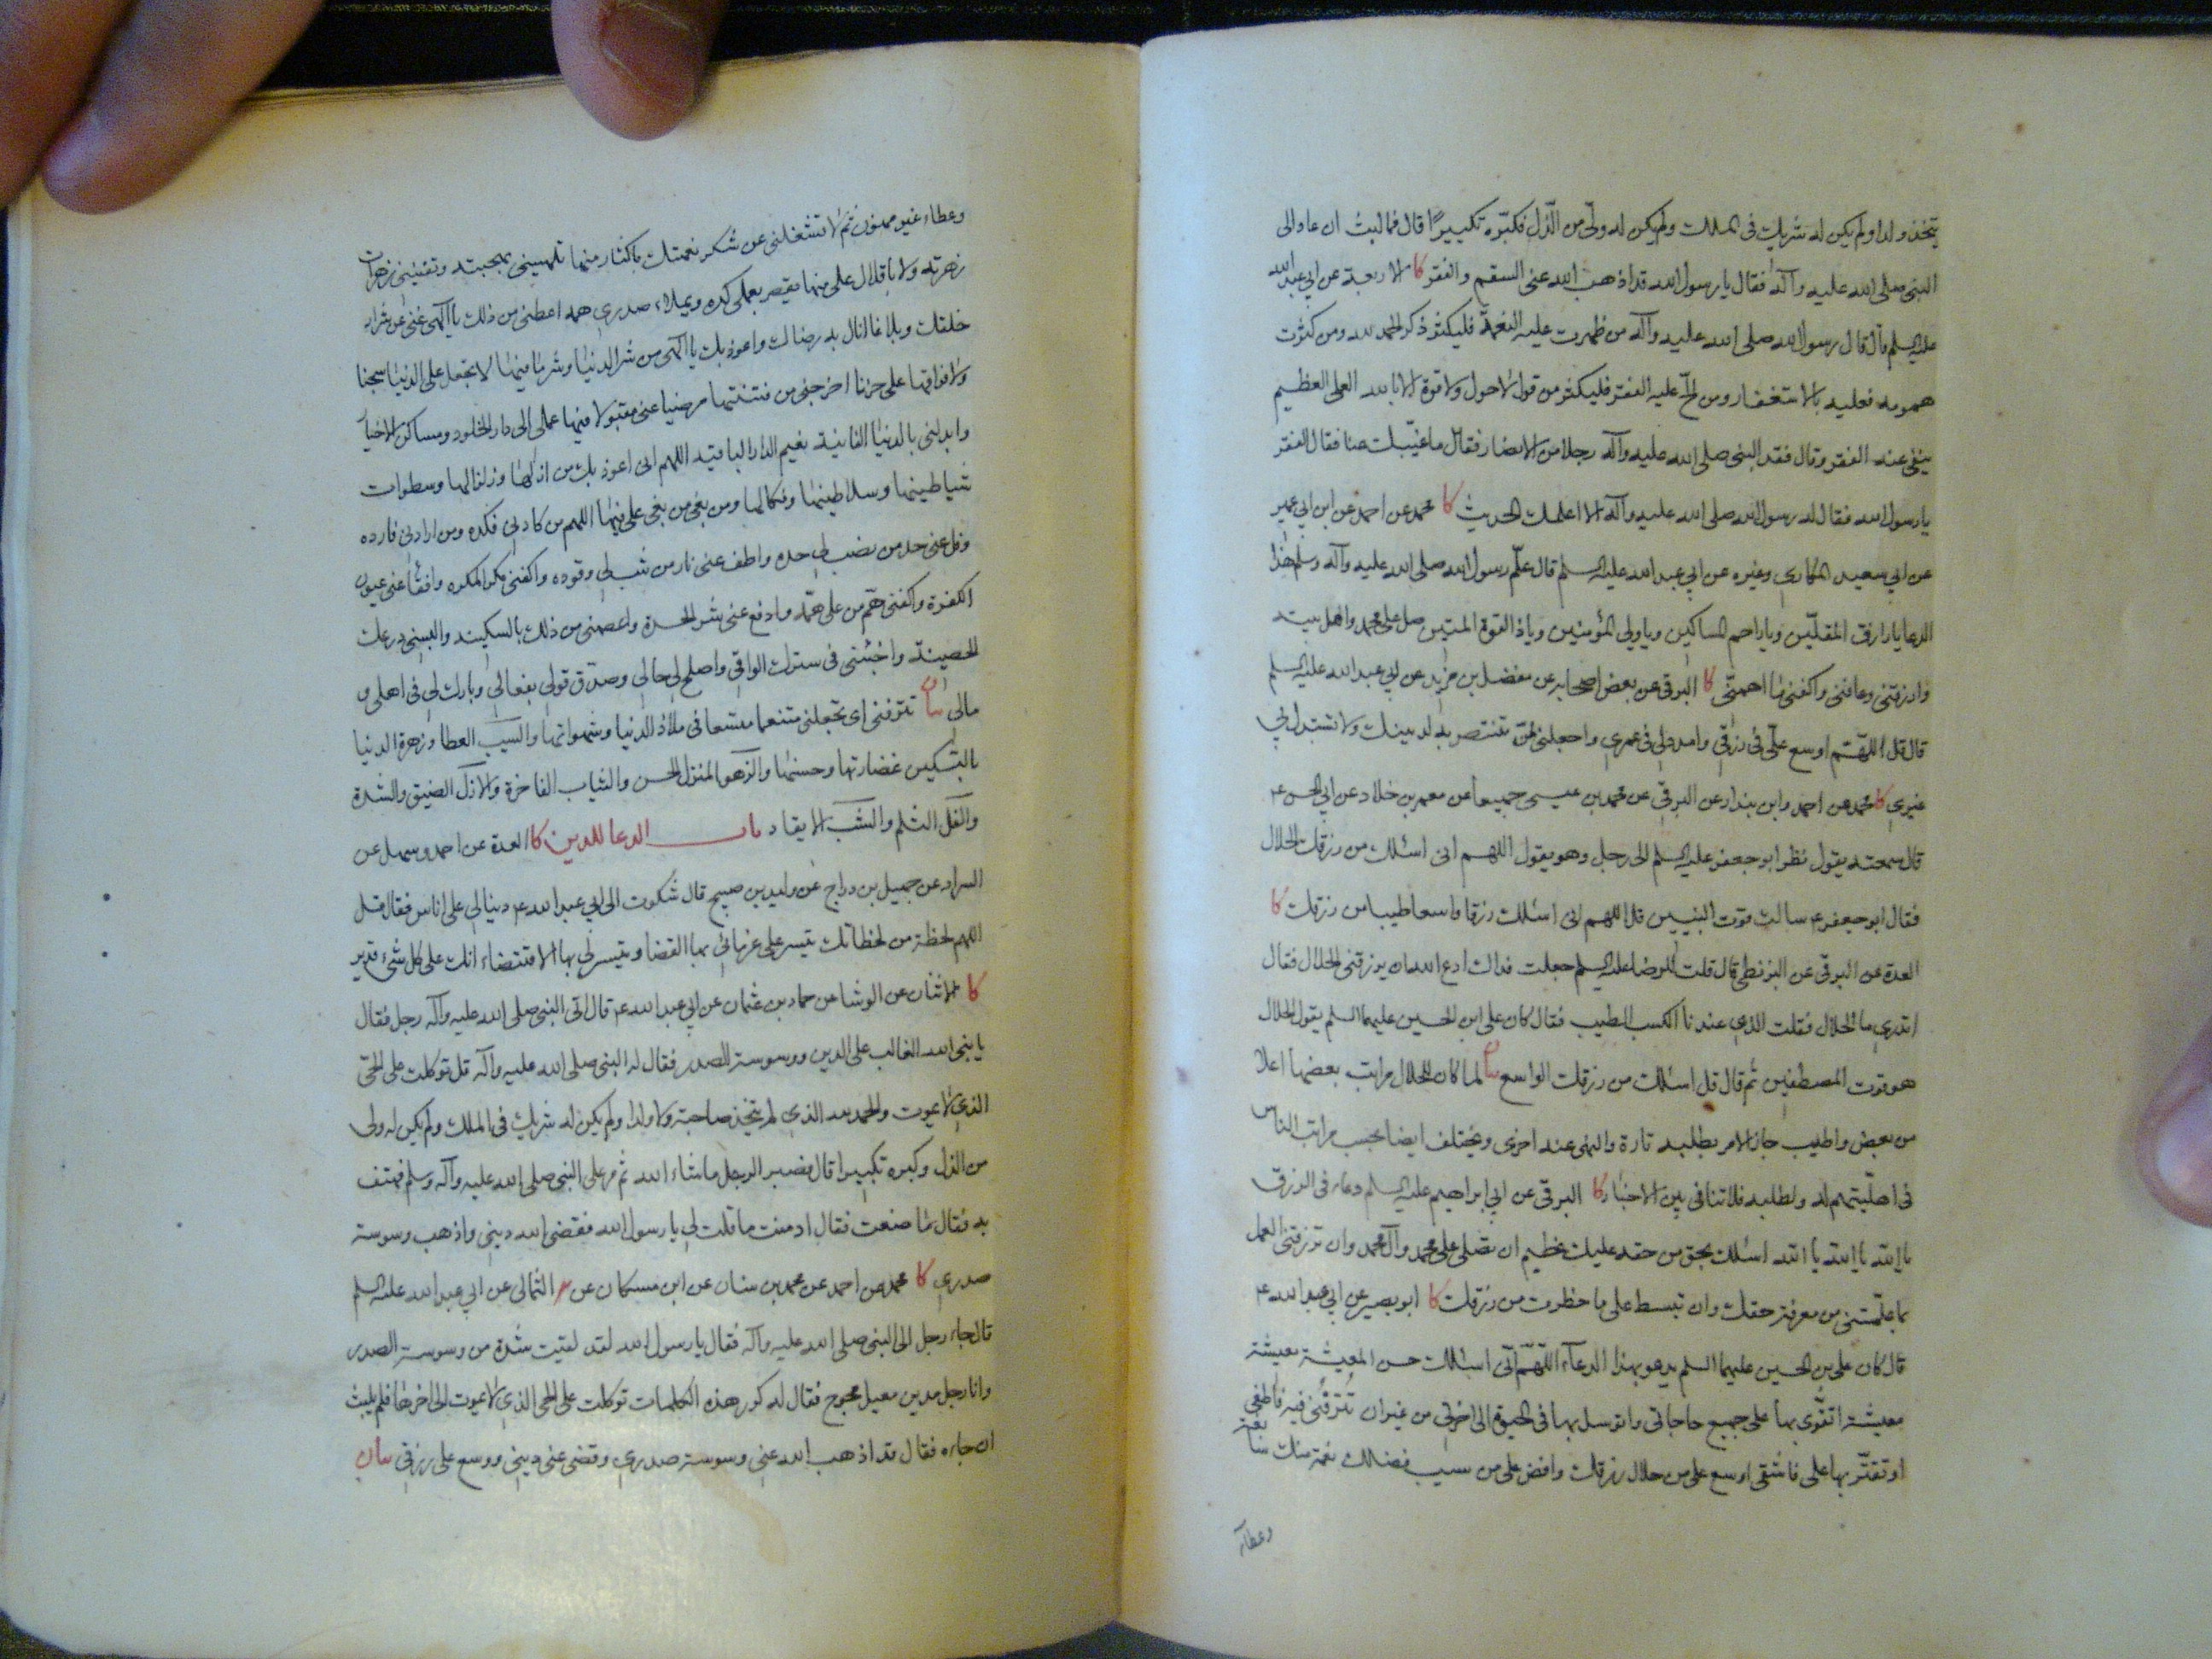 يتخذ ولدا ولم يكن له شريك فى الملك ولم يكن له ولىّ من الذّل فكبّره تكبيرًا قال فما لبث ان عاد الى
النبى صلى الله عليه وآله فقال يا رسول الله قد اذهب الله عنى السقم والفقر كا الاربعة عن ابي عبد الله
عليه السلم قال قال رسول الله صلى الله عليه وآله من ظهرت عليه النعمة فليكثر ذكر الحمد لله ومن كثرت
همومه فعليه بالاستغفار ومن الحّ عليه الفقر فليكثر من قول لاحول ولا قوة الا بالله العلى العظيم
ينفى عنه الفقر وقال فقد النبى صلى الله عليه وآله رجلا من الانصار فقال ما غيّبك عنا فقال الفقر
يا رسول الله فقال له رسول الله صلى الله عليه وآله الا اعلمك الحديث كا محمد عن احمد عن ابن ابي عمير
عن ابي سعيد المكاري وغيره عن ابي عبد الله عليه السلم قال علّم رسول الله صلى الله عليه وآله وسلم هذا
الدعا يا رازق المقلّين ويا راحم المساكين ويا ولي المؤمنين ويا ذا القوة المتين صل على محمد واهل بيته
وارزقنى وعافنى واكفنى ما اهمنى كا البرقى عن بعض اصحابه عن مفضل بن مزيد عن ابي عبد الله عليه السلم
قال قل اللهّم اوسع علىّ فى رزقي وامدد لي فى عمري واجعلنى ممّن تنتصر به لدينك ولا تستبدل بي
غيري كا محمد عن احمد وابن بندار عن البرقى عن محمد بن عيسى جميعا عن معمر بن خلاد عن ابي الحسن ع
قال سمعته يقول نظر ابو جعفر عليه السلم الى رجل وهو يقول اللهم انى اسئلك من رزقك الحلال
فقال ابو جعفر ع سالت قوت النبيين قل اللهم انى اسئلك رزقا واسعا طيبا من رزقك كا
العدة عن البرقى عن البزنطى قال قلت للرضا عليه السلم جعلت فداك ادع الله ان يرزقنى الحلال فقال
اتدري ما الحلال فقلت الذي عندنا الكسب الطيب فقال كان على ابن الحسين عليهما السلم يقول الحلال
هو قوت المصطفين ثم قال قل اسئلك من رزقك الواسع بيان لما كان الحلال مراتب بعضها اعلا
من بعض واطيب جاز الامر بطلبه تارة والنهى عنه اخرى ويختلف ايضا بحسب مراتب الناس
فى اهليتهم له ولطلبه فلا تنافى بين الاخبار كا البرقى عن ابي ابراهيم عليه السلم دعاء فى الرزق
يا الله يا الله يا الله اسئلك بحق من حقه عليك عظيم ان تصلى على محمد وآل محمد وان ترزقنى العمل
بما علّمتنى من معرفة حقك وان تبسط على ما حظرت من رزقك كا ابو بصير عن ابي عبد الله ع
قال كان على بن الحسين عليهما السلم يدعو بهذا الدعاء اللهّم انّى اسئلك حسن المعيشة معيشة
معيشة اتقوّى بها على جميع حاجاتى واتوسل بها فى الحيوة الى اخرتي من غير ان تترفنى فيه فاطغى
او تقتّر بها على فاشقى اوسع على من حلال رزقك وافض على من سيب فضلك نعمة منك سابغة
وعطاء
وعطاء غير ممنون ثم لا تشغلنى عن شكر نعمتك باكثار منها تلهينى بهجبته وتفتننى زهرات
زهرته ولا باقلال على منها يقصر بعملى كده ويملاء صدري همه اعطنى من ذلك يا الهى غنى عن شرار
خلقك وبلاغا انال به رضاك واعوذ بك يا الهى من شر الدنيا وشر ما فيها لا تجعل على الدنيا سجنا
ولا فراقها على حزنا اخرجنى من فتنتها مرضيا عنى مقبولا فيها عملى الى دار الخلود ومساكن الاخيار
وابدلنى بالدنيا الفانية نعيم الدار الباقية اللهم انى اعوذ بك من ازلها وزلزالها وسطوات
شياطينها وسلاطينها ونكالها ومن بغى من بغى على فيها اللهم من كادني فكده ومن ارادني فارده
وفل عنى حد من نصب لى حده واطف عنى نار من شب لى وقوده واكفنى مكر المكره وافقأ عنى عيون
الكفرة واكفنى همّ من على همّه وادفع عنى شر الحسدة واعصمنى من ذلك بالسكينه والبسنى درعك
الحصينة واخبئنى فى سترك الواقي واصلح لي حالي وصدّق قولي بفعالي وبارك لي فى اهلي و
مالى بيان تترفنى اى تجعلنى متنعما متسعا فى ملاذ الدنيا وشهواتها والسيب العطا وزهرة الدنيا
بالتسكين غضارتها وحسنها والزهو المنزل الحسن والثياب الفاخرة والازل الضيق والشدة
والفل الثلم والشب الايقاد باب الدعا للدين كا العدة عن احمد وسهل عن
السراد عن جميل بن دراج عن وليد بن صبيح قال شكوت الى ابي عبد الله ع دينا لي على اناس فقال قل
اللهم لحظة من لحظاتك تيسر على غرمائي بها القضا وتيسر لي بها الاقتضاء انك على كل شىء قدير
كا الاثنان عن الوشا عن حماد بن عثمان عن ابي عبد الله ع قال اتى النبى صلى الله عليه وآله رجل فقال
يا نبى الله الغالب على الدين ووسوسة الصدر فقال له النبى صلى الله عليه وآله قل توكلت على الحىّ
الذي لا يموت والحمد لله الذي لم يتخذ صاحبة ولا ولدا ولم يكن له شريك فى الملك ولم يكن له ولى
من الذل وكبره تكبيرا قال فصبر الرجل ما شاء الله ثم مر على النبى صلى الله عليه وآله وسلم فهتف
به فقال ما صنعت فقال ادمنت ما قلت لي يا رسول الله فقضى الله ديني واذهب وسوسة
صدري كا محمد عن احمد عن محمد بن سنان عن ابن مسكان عن الثمالى عن ابي عبد الله عليه السلم
قال جاء رجل الى النبى صلى الله عليه وآله فقال يا رسول الله لقد لقيت شدة من وسوسة الصدر
وانا رجل مدين معيل محوج فقال له كرر هذه الكلمات توكلت على الحى الذي لا يموت الى اخرها فلم يلبث
ان جاءه فقال قد اذهب الله عنى وسوسة صدري وقضى عنى ديني ووسع على رزقي بيان